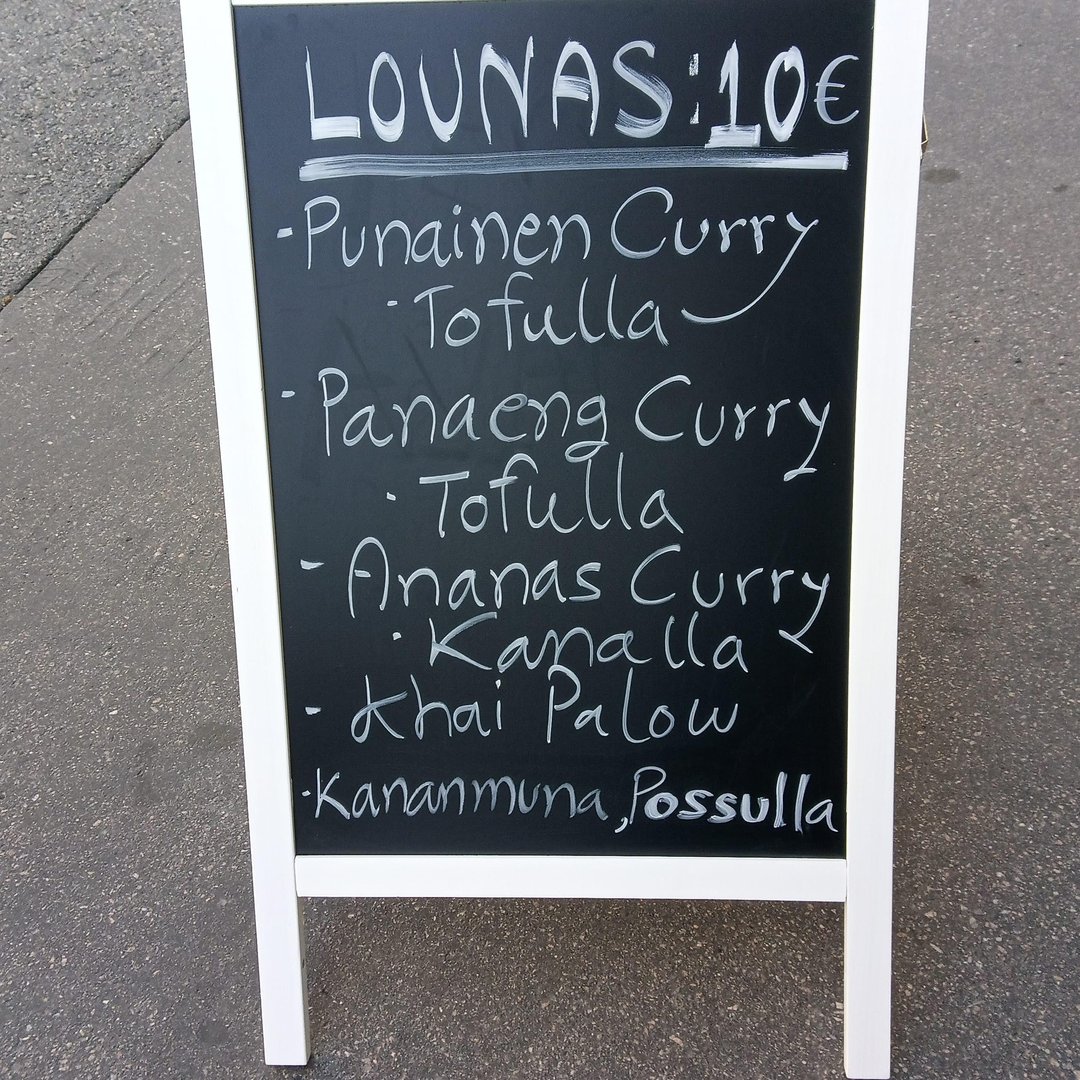 LOUNAS:10€
-Punainen Curry
-Tofulla
-Panaeng Curry
-Tofulla
-Ananas Curry
-Kanalla
-Khai Palow
-Kananmuna,Possulla